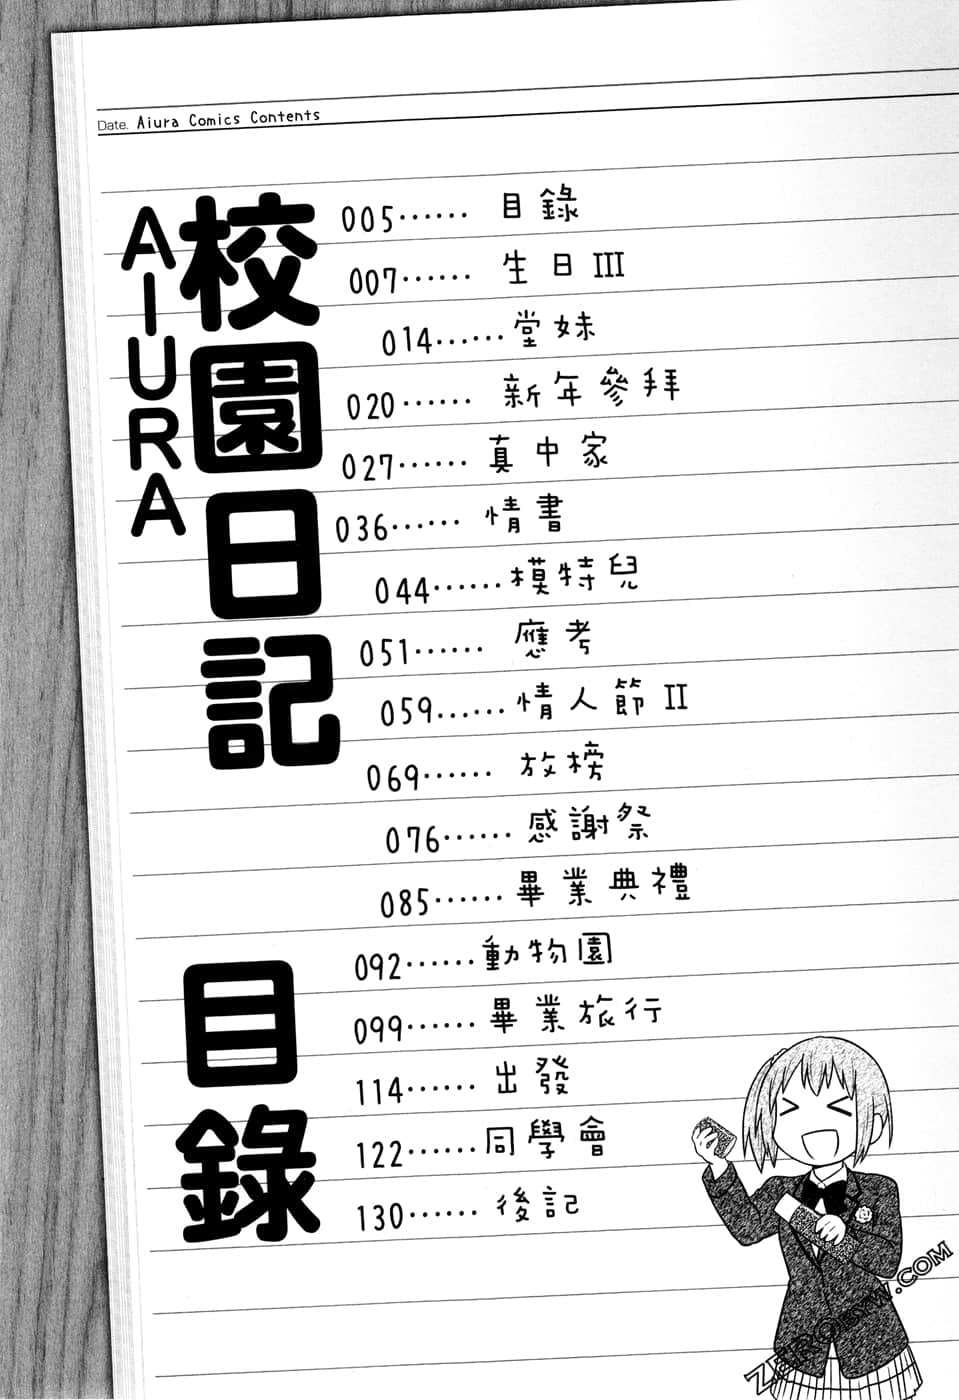 Date. Aiura Comics Contents
AIURA
校園日記
目錄
005…… 目錄
007…… 生日III
014……堂妹
020…… 新年參拜
027…… 真中家
036…… 情書
044……模特兒
051…… 應考
059……情人節II
069…… 放榜
076……感謝祭
085……畢業典禮
092……動物園
099……畢業旅行
114…… 出發
122……同學會
130…… 後記
ZEROBYW.COM